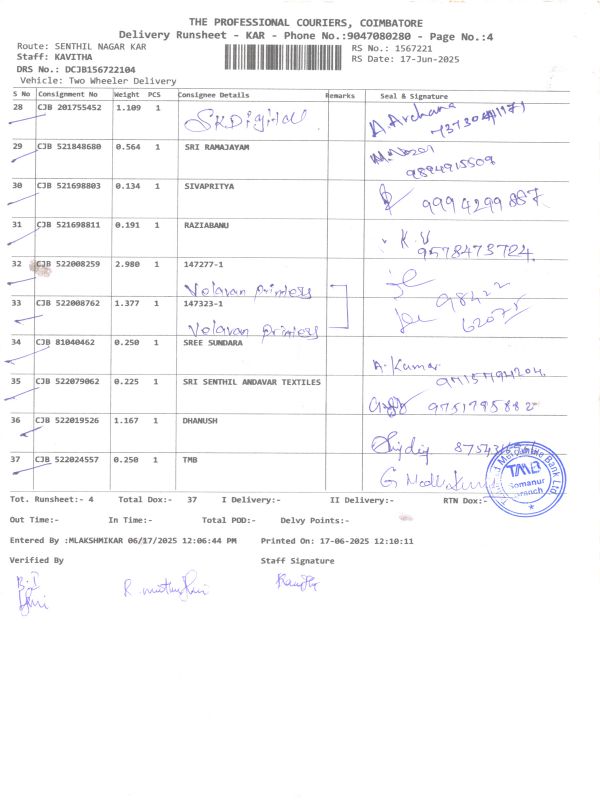 THE PROFESSIONAL COURIERS, COIMBATORE
Delivery Runsheet - KAR - Phone No.:9047080280 - Page No.:4
Route: SENTHIL NAGAR KAR
RS No.: 1567221
Staff: KAVITHA
RS Date: 17-Jun-2025
DRS No.: DCJB156722104
Vehicle: Two Wheeler Delivery
S No Consignment No Weight PCS Consignee Details Remarks Seal & Signature
28 CJB 201755452 1.109 1 SKDigital A. Archana
29 CJB 521848680 0.564 1 SRI RAMAJAYAM
9894915509
30 CJB 521698803 0.134 1 SIVAPRITYA 9994299887
31 CJB 521698811 0.191 1 RAZIABANU K.V
9578473724
32 CJB 522008259 2.980 1 147277-1
Velavan printers 98422
33 CJB 522008762 1.377 1 147323-1
Velavan printers 62075
34 CJB 81040462 0.250 1 SREE SUNDARA A. Kumar
9715794204
35 CJB 522079062 0.225 1 SRI SENTHIL ANDAVAR TEXTILES 9751795882
36 CJB 522019526 1.167 1 DHANUSH
37 CJB 522024557 0.250 1 TMB
TMB
Somanur
Branch
Tot. Runsheet:- 4 Total Dox:- 37 I Delivery:- II Delivery:- RTN Dox:-
Out Time:- In Time:- Total POD:- Delvy Points:-
Entered By :MLAKSHMIKAR 06/17/2025 12:06:44 PM Printed On: 17-06-2025 12:10:11
Verified By Staff Signature